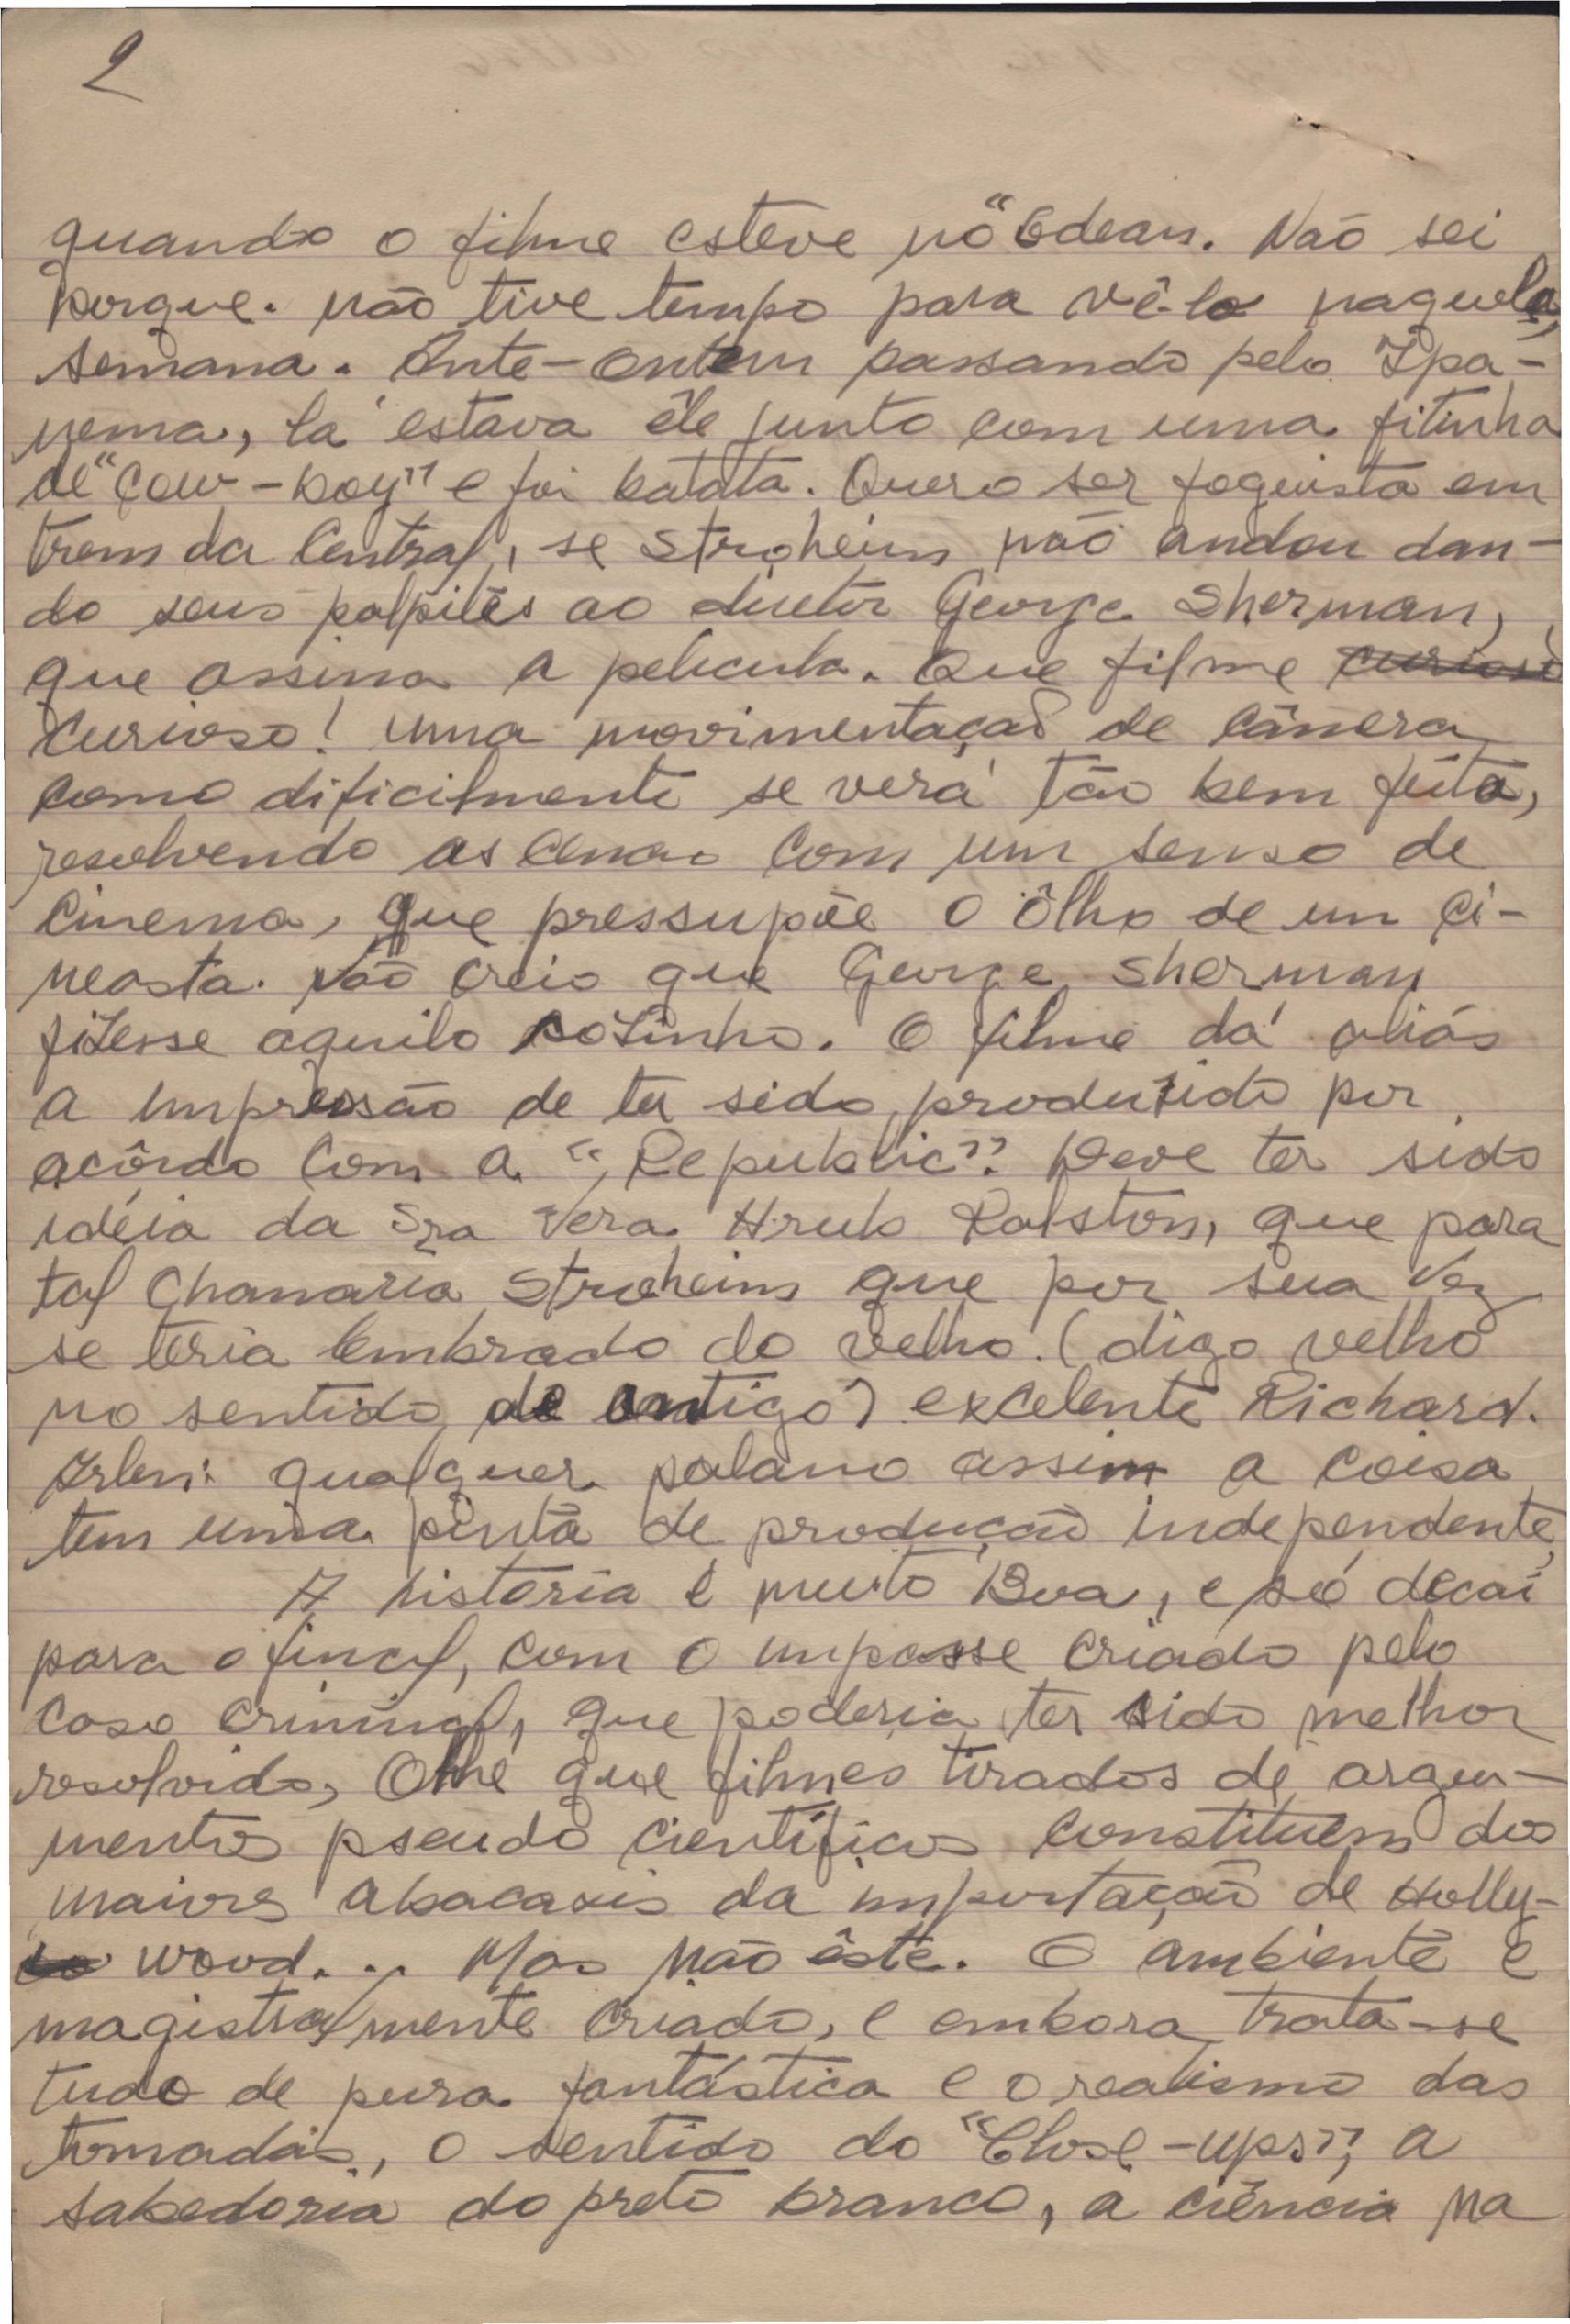 2
quando o filme esteve no "Odeon. Não sei
porque. não tive tempo para vê-lo naquela
semana. Ante-ontem passando pelo Ipa-
nema, lá estava êle junto com uma fitinha
de "cow-boy" e foi batata. Quero ser foguista em
trem da Central, se Stroheim não andou dan-
do seus palpites ao diretor George Sherman,
que assina a pelicula. Que filme curioso
curioso! Uma movimentação de câmera
como dificilmente se verá tão bem feita,
resolvendo as cenas com um senso de
cinema, que pressupõe o ôlho de um ci-
neasta. Não creio que George Sherman
fizesse aquilo sozinho. O filme dá aliás
a impressão de ter sido produzido por
acôrdo com a "Republic". Deve ter sido
idéia da Sra Vera Hrub Ralston, que para
tal chamaria Stroheim que por sua vez
se teria lembrado do velho (digo velho
no sentido de antigo) excelente Richard.
Arlen: qualquer palano assim a coisa
tem uma pinta de produção independente,
A historia é muito Boa, e só decai
para o final, com o impasse criado pelo
caso criminal, que poderia ter sido melhor
resolvido, Olhe que filmes tirados de argu-
mentos pseudo cientificos constituem dos
maiores abacaxis da importação de Holly-
wood... Mas não êste. O ambiente é
magistralmente criado, e embora trata-se
tudo de pura fantástica e o realismo das
tomadas, o sentido do "Close-ups", a
sabedoria do preto branco, a ciência na